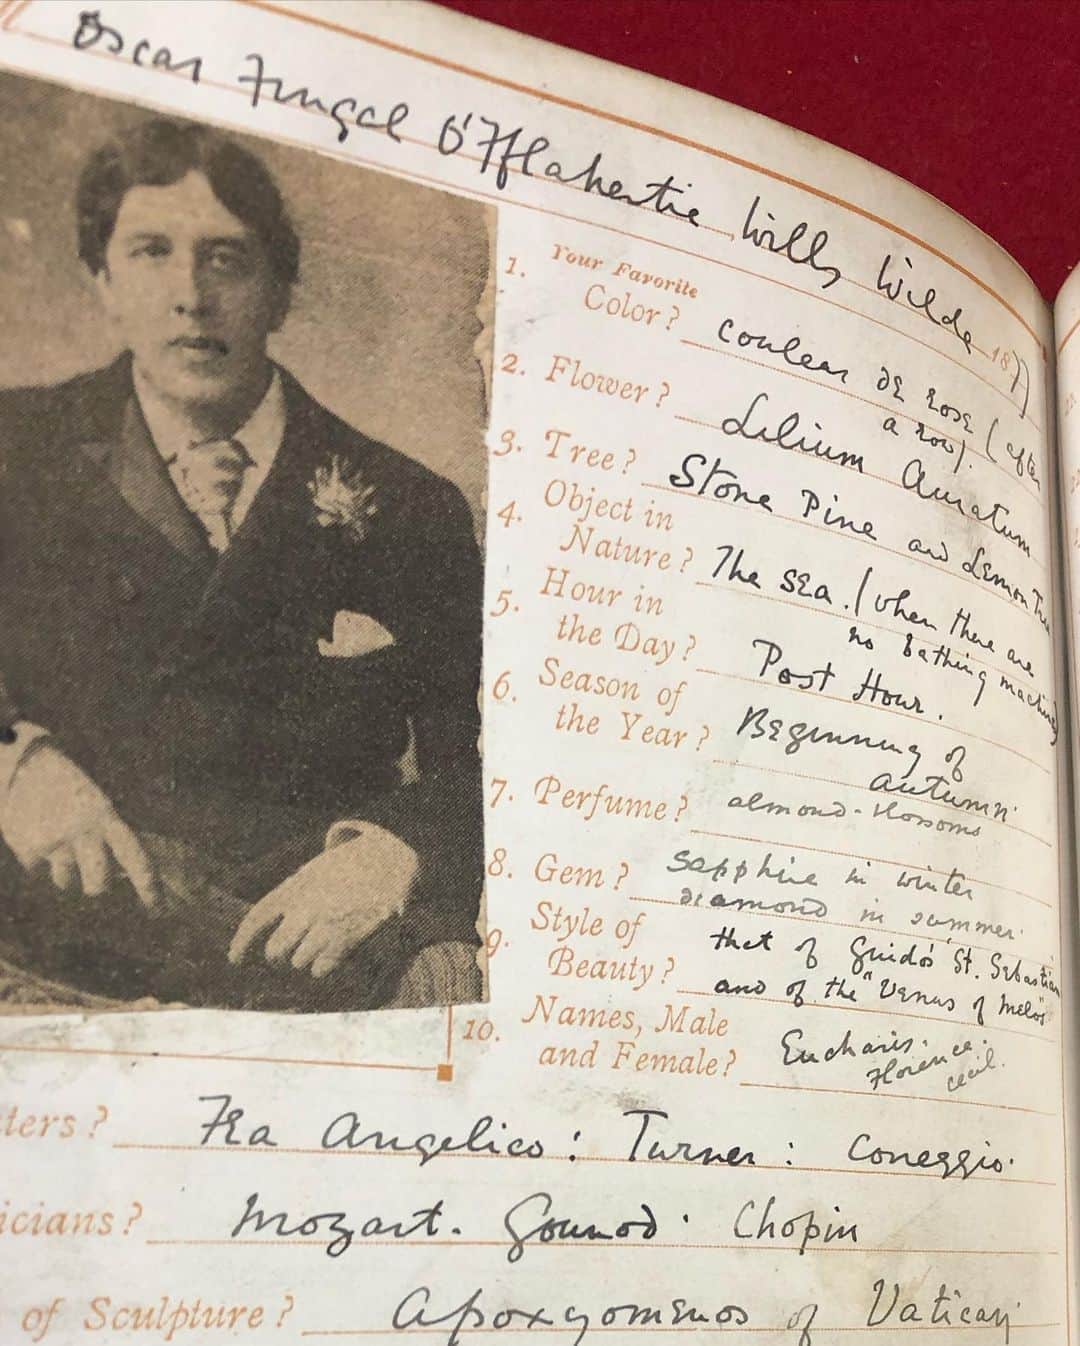 Oscar Fingal O'Fflahertie Wills Wilde
1877
Your Favorite
1. Color? couleur de rose (after
a row).
2. Flower? Lilium Auratum
3. Tree? Stone Pine and Lemon Tree
4. Object in
Nature? The sea. (when there are
no bathing machines
5. Hour in
the Day? Post Hour.
6. Season of
the Year? Beginning of
autumn.
7. Perfume? almond-blossoms
8. Gem? sapphire in winter
diamond in summer.
9. Style of
Beauty? that of Guido's St. Sebastian
and of the "Venus of Melos"
10. Names, Male
and Female? Eucharis. Florence. Cecil.
ters? Fra Angelico: Turner: Correggio.
icians? Mozart. Gounod. Chopin
of Sculpture? Apoxyomenos of Vatican